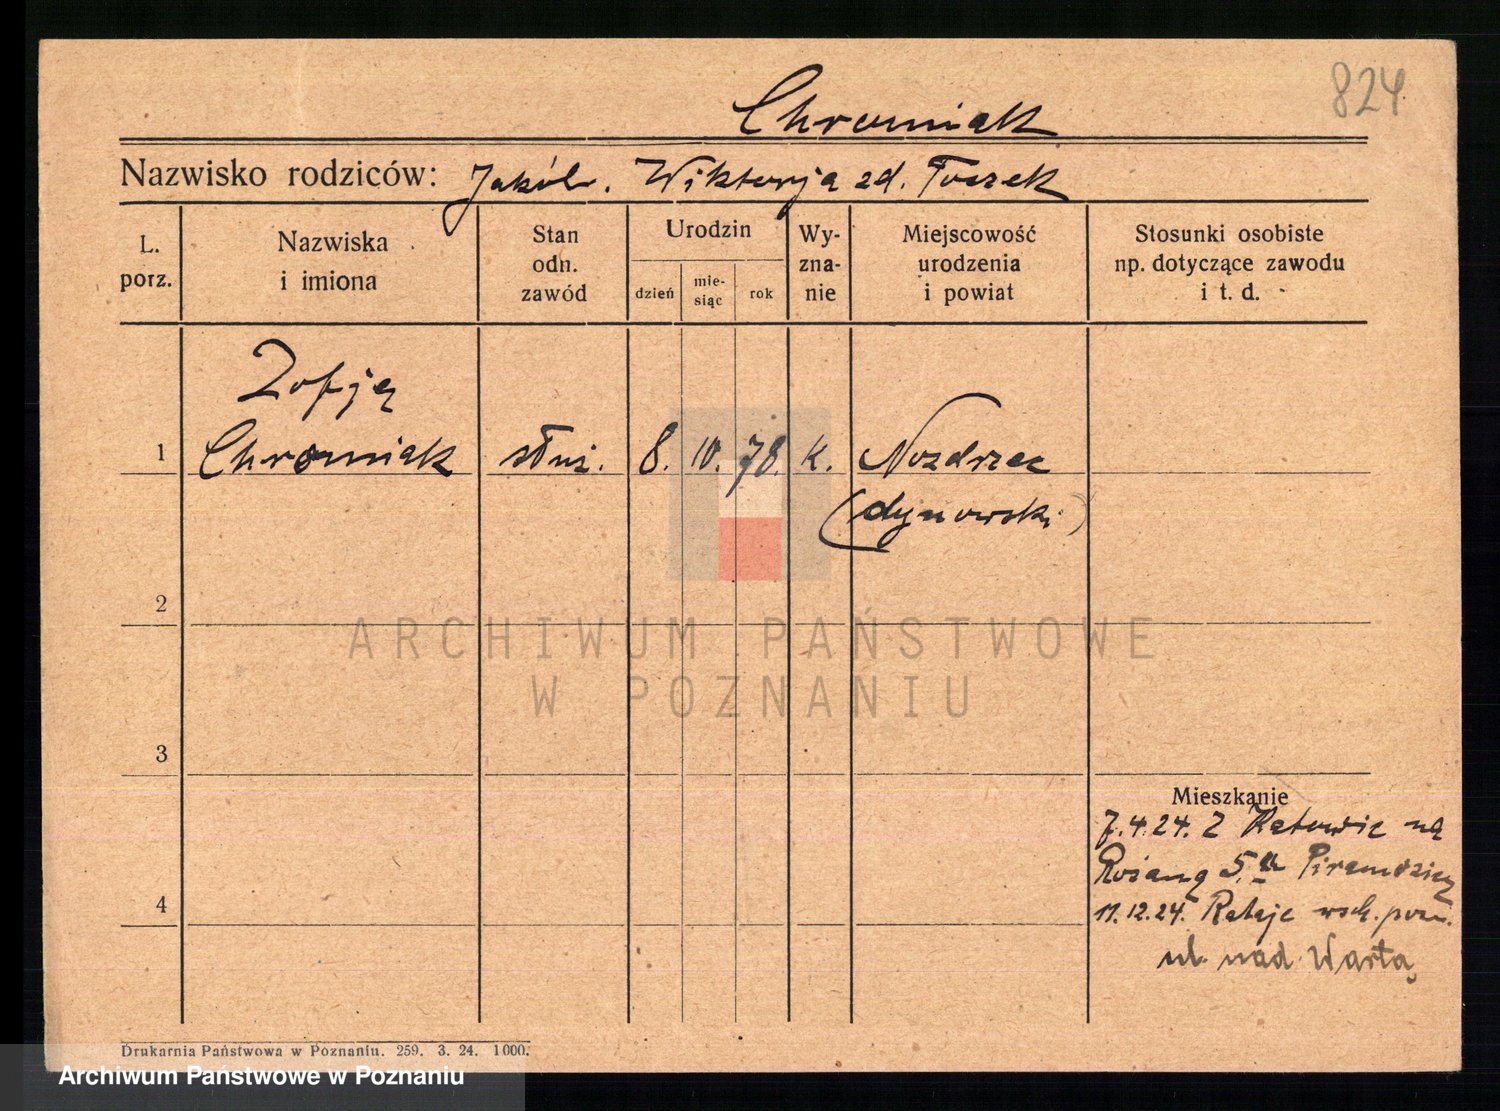 824
Chromiak
Nazwisko rodziców: Jakób. Wiktorja zd. Toczek
L. porz.
Nazwiska i imiona
Stan odn. zawód
Urodzin
dzień
mie- siąc
rok
Wy- zna- nie
Miejscowość urodzenia i powiat
Stosunki osobiste np. dotyczące zawodu i t. d.
Zofja
1 Chromiak służ. 8. IV. 78. k. Nozdrzec
(dynowski)
2
ARCHIWUM PAŃSTWOWE
W POZNANIU
3
4
Mieszkanie
7.4.24. Z Katowic na
Różaną 5.a
11.12.24. Rataje wsch. pozn.
ul. nad Wartą
Drukarnia Państwowa w Poznaniu. 259. 3. 24. 1000.
Archiwum Państwowe w Poznaniu